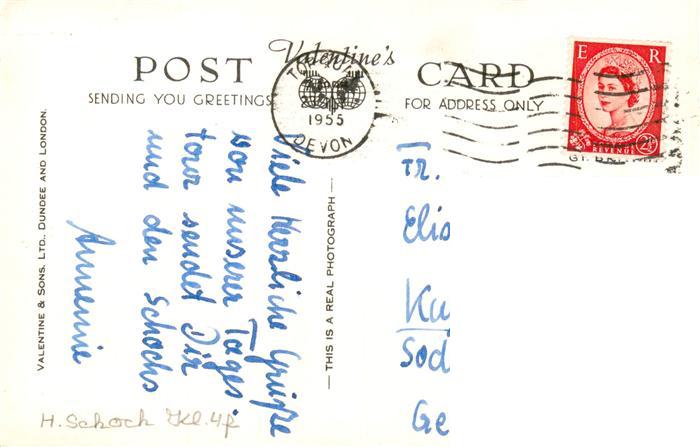 POST Valentine's CARD
SENDING YOU GREETINGS
FOR ADDRESS ONLY
1955
DEVON
E R
REVENUE
Viele Herzliche Grüße
von unserer Tages-
tour sendet Dir
und den Schochs
Annemie
Fr.
Elis
Ka
Sod
Ge
VALENTINE & SONS. LTD., DUNDEE AND LONDON.
— THIS IS A REAL PHOTOGRAPH —
H. Schoch Kl. 4f